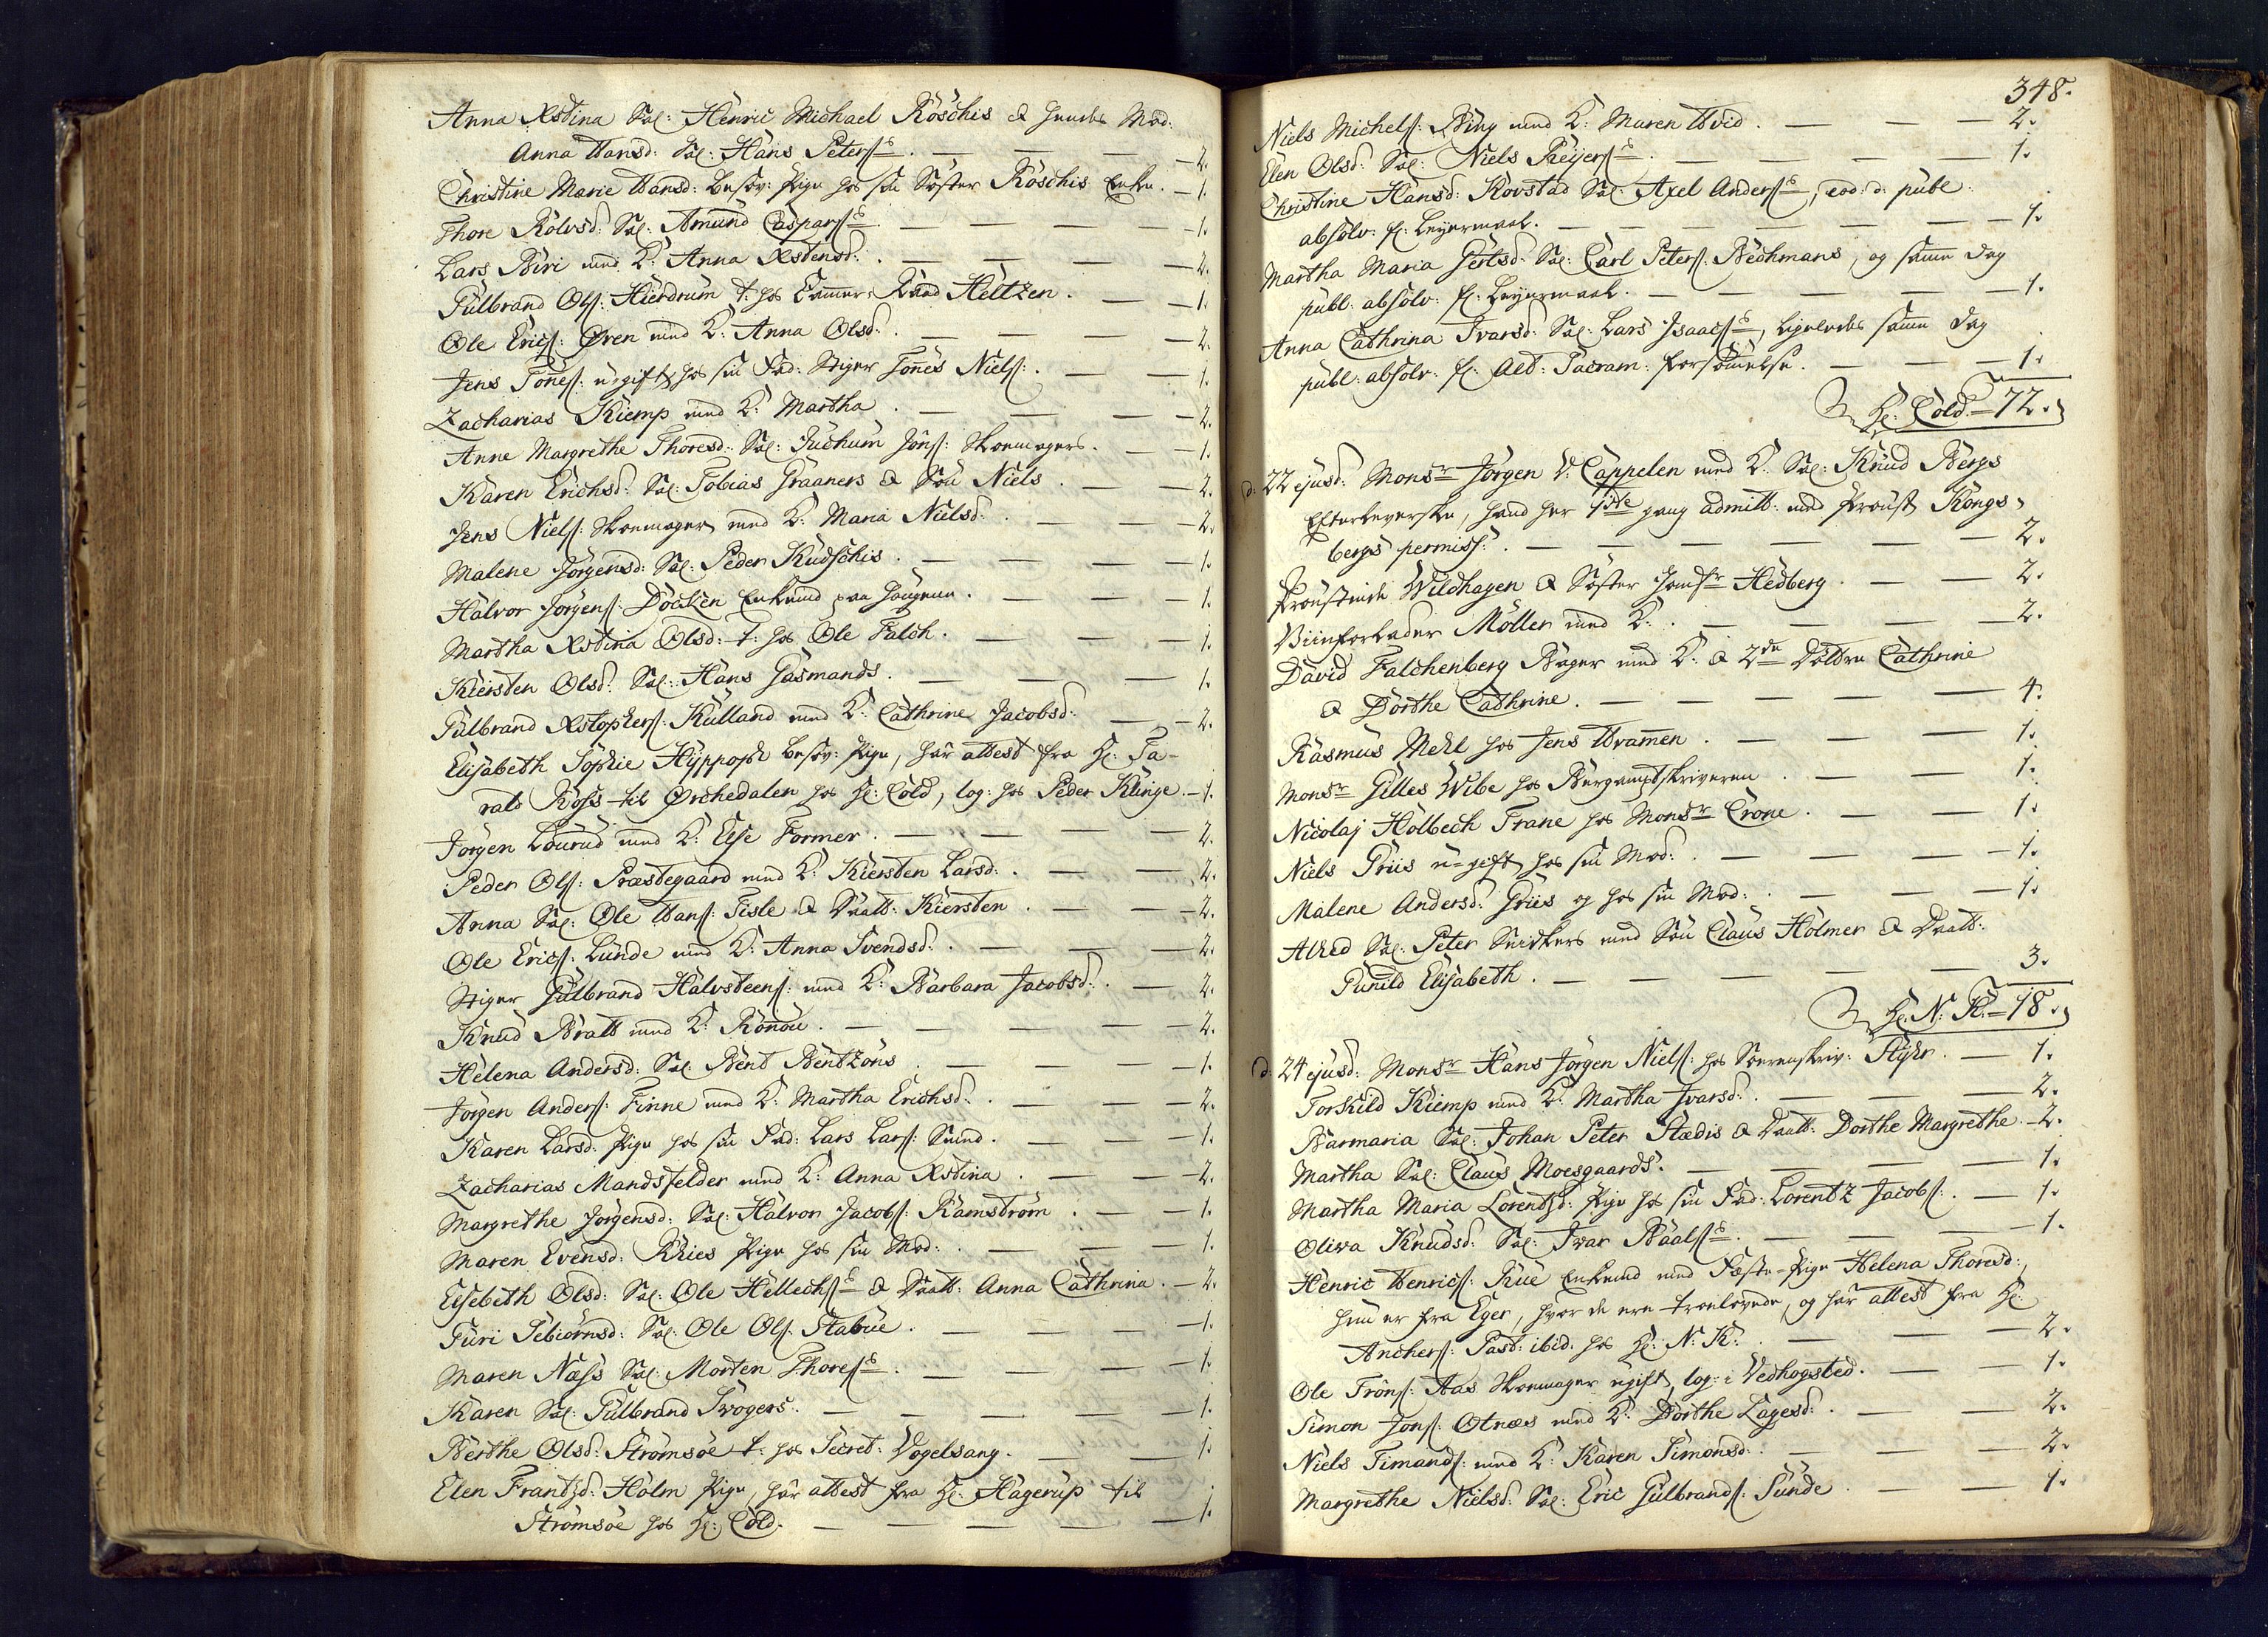 Anna Xstina Sal: Henric Michael Röschis & hendes Mod:
Anna Hansd: Sal: Hans Peters: — 2.
Christine Marie Hansd: besov: Pige hos sin Søster Röschis Enke. — 1.
Thore Rolvsd: Sal: Amund Caspars: — 1.
Lars Biri med K: Anna Xstensd: — 2.
Gulbrand Ols: Hierdrum t: hos Cammer-Raad Heltzen. — 1.
Ole Erics: Øren med K: Anna Olsd: — 2.
Jens Tønes: ugift hos sin Fad: Stiger Tønes Niels: — 1.
Zacharias Kiemp med K: Martha — 2.
Anne Margrethe Thoresd: Sal: Juchum Jöns: Skoemagers. — 1.
Karen Erichsd: Sal: Tobias Graaners & Søn Niels — 2.
Jens Niels: Skoemager med K: Maria Nielsd: — 2.
Malene Jörgensd: Sal: Peder Kudschis — 1.
Halvor Jörgens: Döcken Enkemd paa Haugene. — 1.
Martha Xstina Olsd: t: hos Ole Falch. — 1.
Kiersten Olsd: Sal: Hans Gasmands. — 1.
Gulbrand Xstophers: Kulland med K: Cathrine Jacobsd: — 2.
Elisabeth Sophie Hyppoph besov: Pige, har attest fra Hr: Ta-
rald Röss til Orchedalen hos Hr: Cold, log: hos Peder Klinge. — 1.
Jörgen Lourud med K: Else Former. — 2.
Peder Ols: Præstegaard med K: Kiersten Larsd: — 2.
Anna Sal: Ole Hans: Tisle & Daatt: Kiersten — 2.
Ole Erics: Lunde med K: Anna Svendsd: — 2.
Stiger Gulbrand Halvsteens: med K: Barbara Jacobsd: — 2.
Knud Bratt med K: Rönou. — 2.
Helena Andersd: Sal: Bent Bentzons — 1.
Jörgen Anders: Finne med K: Martha Erichsd: — 2.
Karen Larsd: Pige hos sin Fad: Lars Lars: Smed. — 1.
Zacharias Mandsfelder med K: Anna Xstina — 2.
Margrethe Jörgensd: Sal: Halvor Jacobs: Ramström — 1.
Maren Evensd: Kries Pige hos sin Mod: — 1.
Elsebeth Olsd: Sal: Ole Hellechs: & Daatt: Anna Cathrina. — 2.
Guri Tebiörnsd: Sal: Ole Ols: Stabüe. — 1.
Maren Næss Sal: Morten Thores: — 1.
Karen Sal: Gulbrand Svogers. — 1.
Berthe Olsd: Strömsöe t: hos Secret: Vogelsang. — 1.
Elen Frantzd: Holm Pige, har attest fra Hr: Hagerup til
Strömsöe hos Hr: Cold. — 1.
348.
Niels Michels: Ring med K: Maren Hvid. — 2.
Elen Olsd: Sal: Niels Reijers: — 1.
Christine Hansd: Kovstad Sal: Axel Anders:, eod: d: publ:
absolv: f: Leyermaal. — 1.
Martha Maria Gertsd: Sal: Carl Peters: Bechmans, og samme Dag
publ: absolv: f: Leyermaal. — 1.
Anna Cathrina Ivarsd: Sal: Lars Isaacs:, ligeledes samme Dag
publ: absolv: f: Alt: Sacram: forsømmelse. — 1.
Hr: Cold. — 72.
d: 22 ejusd: Monsr Jörgen v: Cappelen med K: Sal: Knud Bergs
Efterleverske, hand her 1ste gang admitt: med Proust Kongs-
bergs permiss: — 2.
Proustinde Wildhagen & Søster Jomfr Hedberg. — 2.
Viinforlader Möller med K: — 2.
David Falchenberg Bager med K: & 2de Døttre Cathrine
& Dorthe Cathrine. — 4.
Rasmus Mehl hos Jens Hvamen. — 1.
Monsr Gilles Wibe hos Bergamptskriveren — 1.
Nicolaj Holbech Trane hos Monsr Crone. — 1.
Niels Griis u-gift hos sin Mod: — 1.
Malene Andersd: Griis og hos sin Mod: — 1.
Alhed Sal: Peter Snidkers med Søn Claus Holmer & Daatt:
Gunild Elisabeth. — 3.
Hr: N. K. — 18.
d: 24 ejusd: Monsr Hans Jörgen Niels: hos Sorenskriv: Styhr. — 1.
Torskild Kiemp med K: Martha Ivarsd: — 2.
Barmaria Sal: Johan Peter Stædis & Daatt: Dorthe Margrethe. — 2.
Martha Sal: Claus Moesgaards. — 1.
Martha Maria Lorentzd: Pige hos sin Fad: Lorentz Jacobs: — 1.
Oliva Knudsd: Sal: Ivar Baals: — 1.
Henric Henrics: Rüe Enkemd med Fæste-Pige Helena Thoresd:,
hun er fra Eger, hvor de ere troelovede, og har attest fra Hr:
Anchers: Past: ibid. hos Hr: N: K: — 2.
Ole Tröns: Aas Skoemager ugift, log: i Vedhogsted. — 1.
Simon Jons: Otnæs med K: Dorthe Lagesd: — 2.
Niels Timands: med K: Karen Simonsd: — 2.
Margrethe Nielsd: Sal: Eric Gulbrands: Sünde — 1.